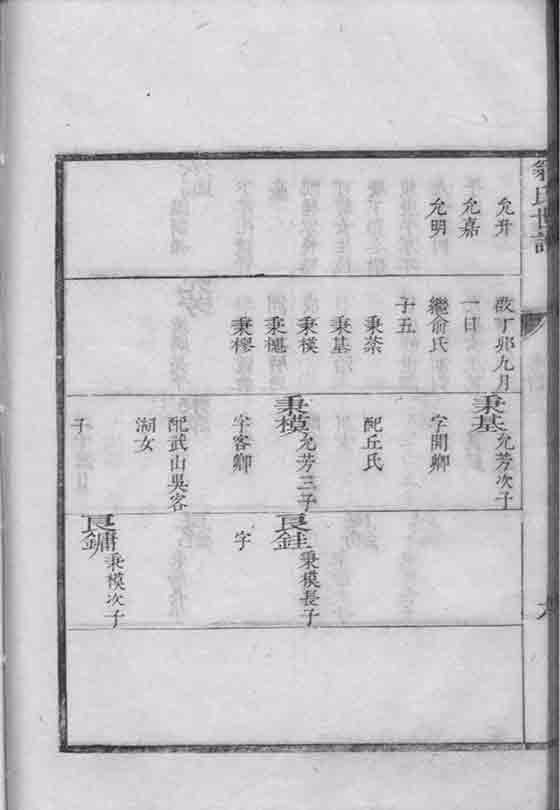 氏世譜
允升
允嘉
允明
丁卯九月
一日
繼俞氏
子五
秉棻
秉基
秉模
秉
秉樛
秉基 允芳次子
字開卿
配丘氏
秉模 允芳三子
字客卿
配武山吳客
湖女
子
良銈 秉模長子
字
良鏞 秉模次子